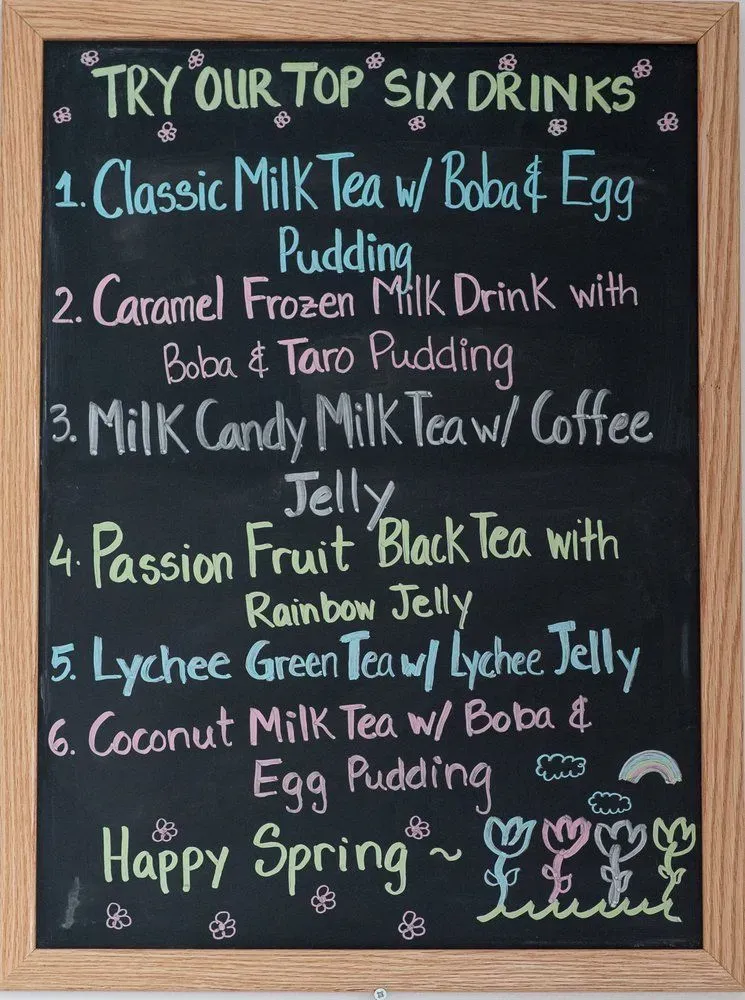 TRY OUR TOP SIX DRINKS
1. Classic Milk Tea w/ Boba & Egg
Pudding
2. Caramel Frozen Milk Drink with
Boba & Taro Pudding
3. Milk Candy Milk Tea w/ Coffee
Jelly
4. Passion Fruit Black Tea with
Rainbow Jelly
5. Lychee Green Tea w/ Lychee Jelly
6. Coconut Milk Tea w/ Boba &
Egg Pudding
Happy Spring ~